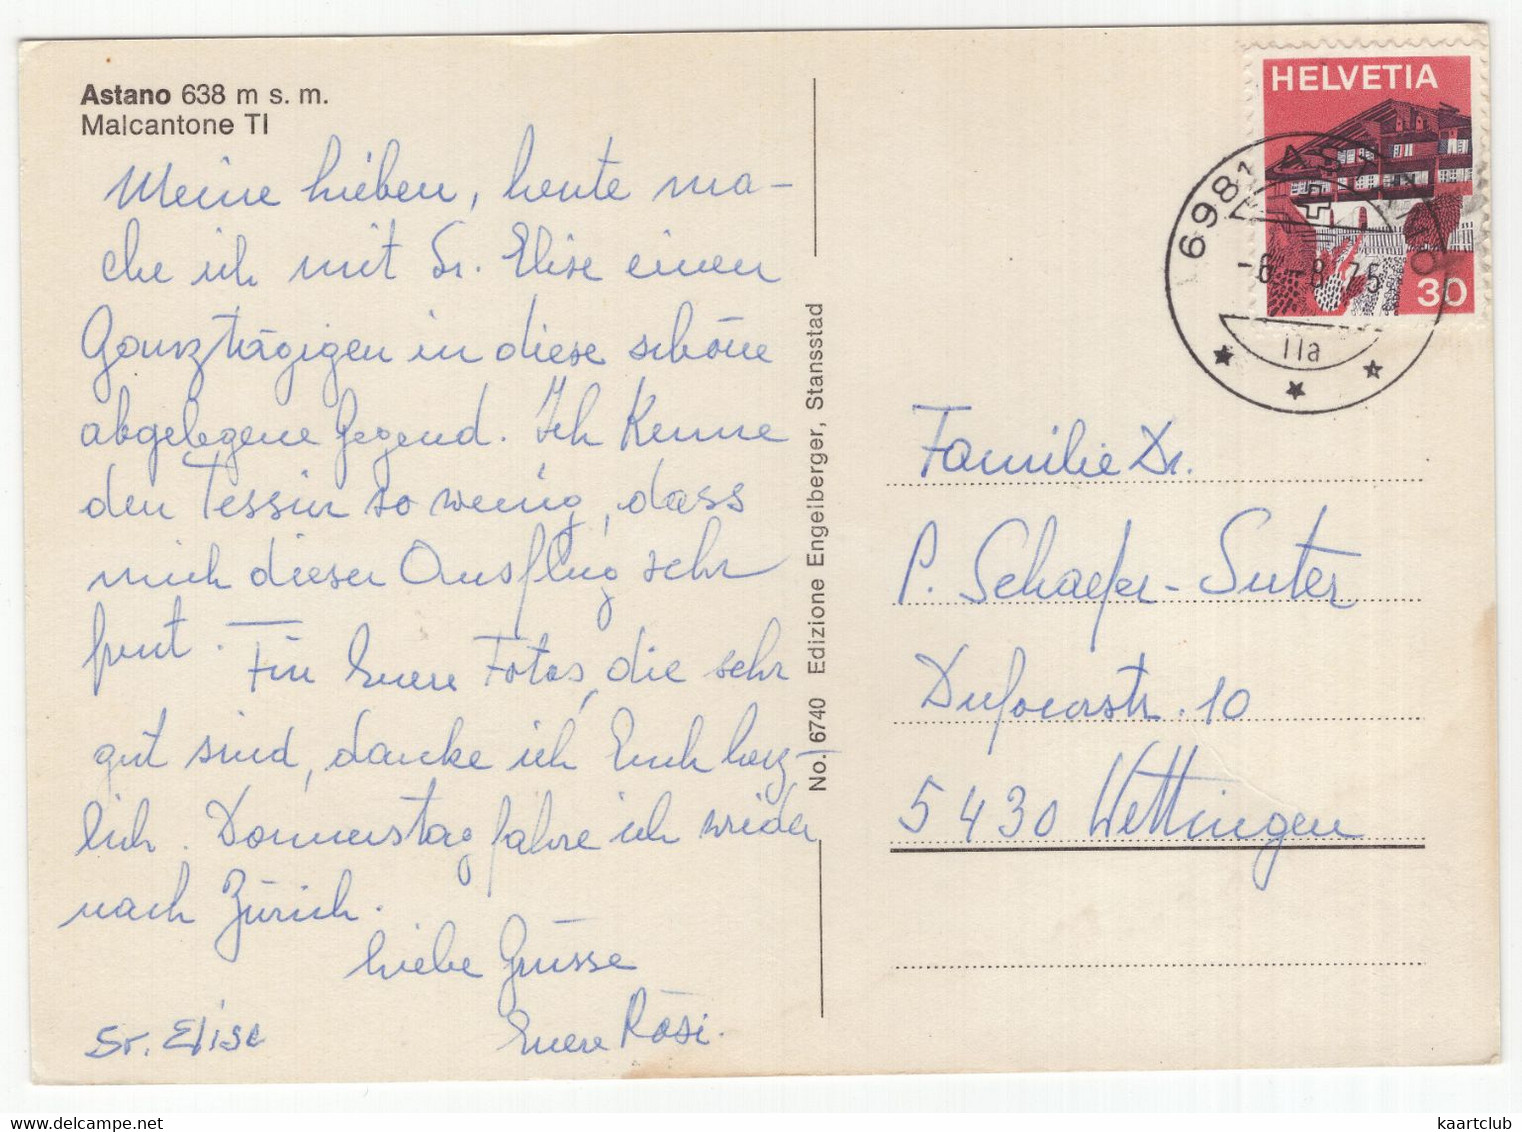 Astano 638 m s. m.
Malcantone TI
Meine Lieben, heute ma-
che ich mit Sr. Elise einen
Ganztägigen in diese schöne
abgelegene Gegend. Ich Kenne
den Tessin so wenig, dass
mich dieser Ausflug sehr
freut. — Für Euere Fotos, die sehr
gut sind, danke ich Euch herz-
lich. Donnerstag fahre ich wieder
nach Zürich.
Liebe Grüsse
Euere Rösi.
Sr. Elise
No. 6740 Edizione Engelberger, Stansstad
HELVETIA
30
6981 ASTANO
-6.-8.75
11a
Familie Dr.
P. Schaefer-Suter
Dufourstr. 10
5430 Wettingen
kaartclub